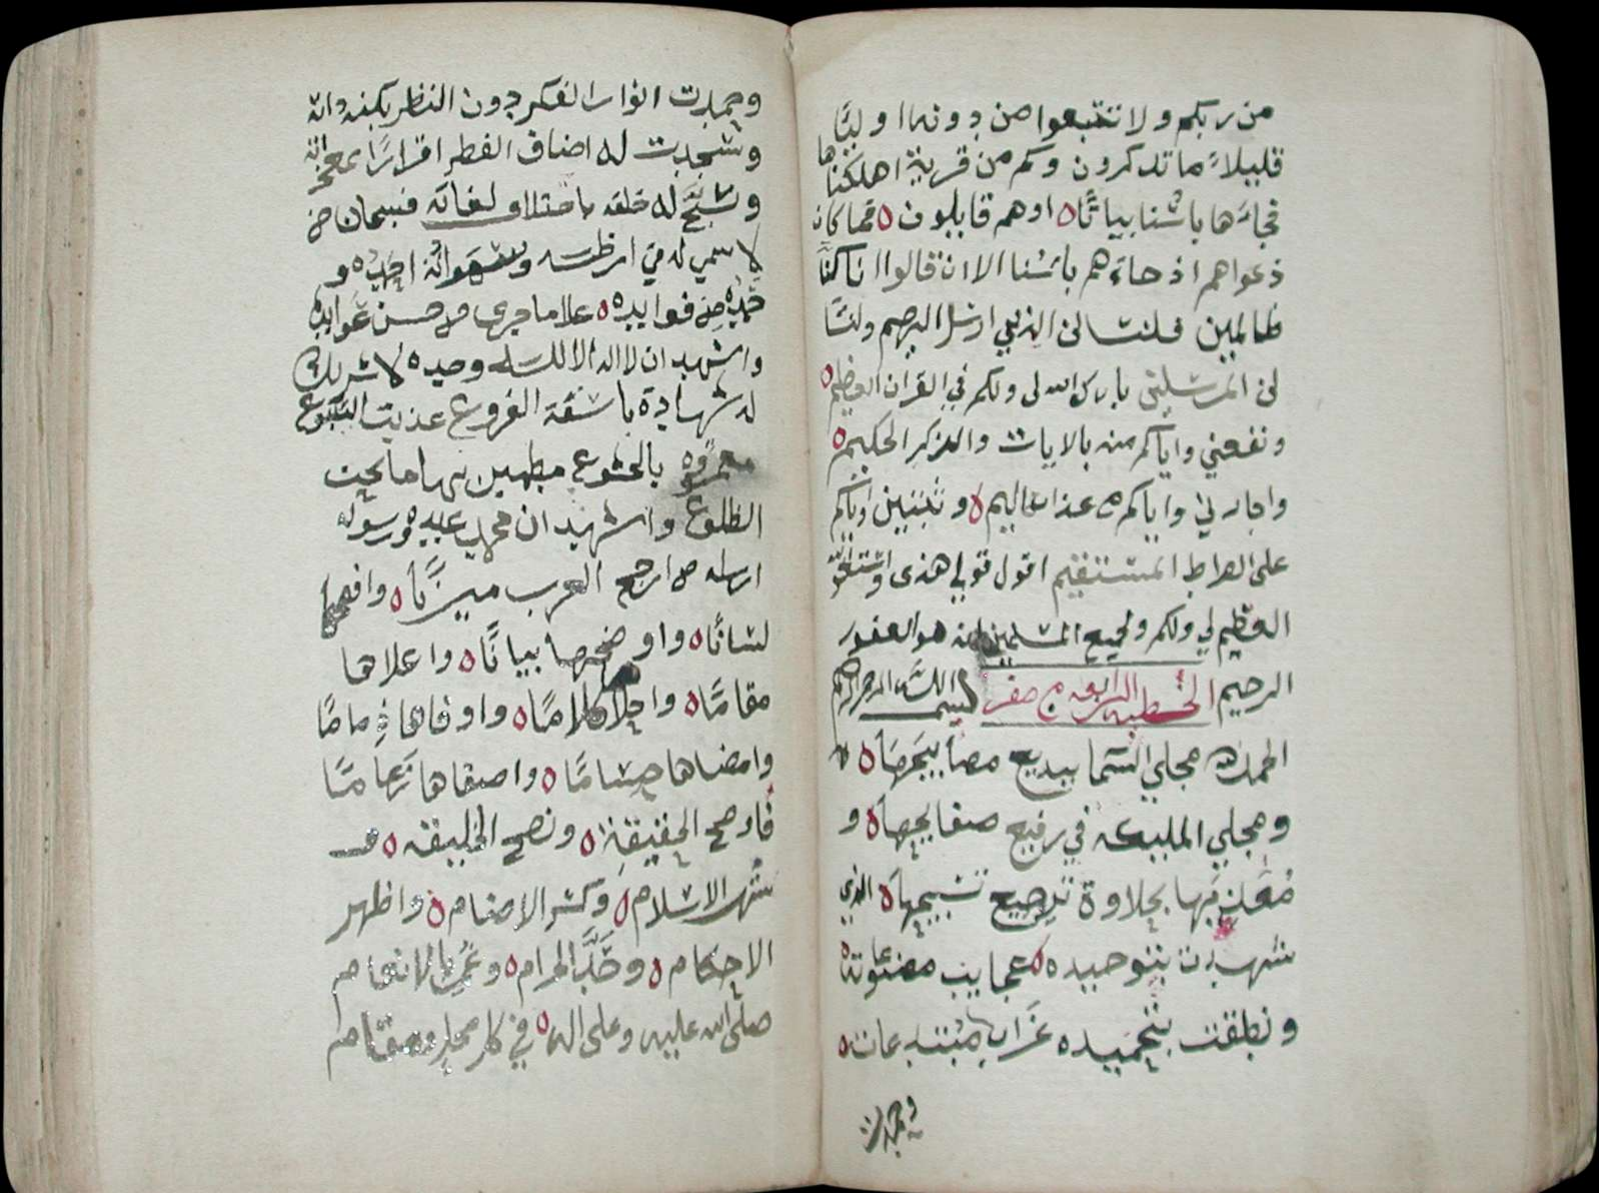 من ربكم ولا تتبعوا من دونه اوليآ
قليلاً ما تذكرون وكم من قرية اهلكناها
فجآءها باسنا بياتًا ه او هم قايلون ه فما كان
دعواهم اذ جاءهم باسنا الا ان قالوا انا كنا
ظالمين فلنسالن الذين ارسل اليهم ولنسا
لن المرسلين بارك الله لي ولكم في القران العظيم ه
ونفعني واياكم منه بالايات والذكر الحكيم ه
واجارني واياكم من عذاب اليم ه وثبتني واياكم
على الصراط المستقيم اقول قولي هذى واستغفر الله
العظيم لي ولكم ولجميع المسلمين انه هو الغفور
الرحيم الخطبه الرابعه من صفر بسم الله الرحمن الرحيم
الحمد لله مجلي السما ببديع مصابيحها ه
ومجلي المليكه في رفيع صفايحها ه و
بحلاوة ترجيع تسبيحها ه الذي
شهدت بتوحيده عجايب مصنوعاته ه
ونطقت بتحميده غرايب مبتدعاته ه
وحمدت
وحمدت انوار الفكر دون النظر بكنه ذاته
وسجدت له اصناف الفطر اقرارًا بمعجزاته
وسبَّح له خلقه باختلاف لغاته فسبحان من
لا سمي له في ارضه وسمواته احمده و
حمده من فوايده ه علا ما جرى من حسن عوايده
واشهد ان لا اله الا الله وحده لا شريك
له شهادة باسقة الفروع عذبت الينبوع
معروفه بالخشوع
الطلوع واشهد ان محمد عبده ورسوله
ارسله من ارجح العرب ميزانًا ه وافصحها
لسانًا ه واوضحها بيانًا ه واعلاها
مقامًا ه واحلاها كلامًا ه واوفاها ذمامًا
وامضاها حسامًا ه واصفاها رغامًا
فاوضح الحقيقة ه ونصح الخليقه ه و
شهر الاسلام ه وكسر الاصنام ه واظهر
الاحكام ه وحظَّر الحرام ه وعمَّ بالانعام
صلى الله عليه وعلى اله ه في كل محل ومقام